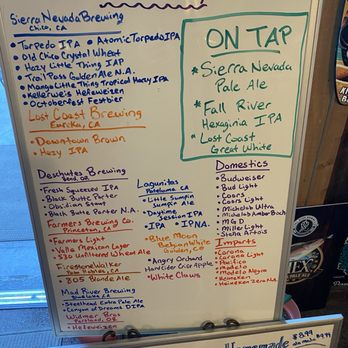 Sierra Nevada Brewing
Chico, CA
• Torpedo IPA • Atomic Torpedo IPA
• Old Chico Crystal Wheat
• Hazy Little Thing IAP
• Trail Pass Golden Ale N.A.
• Mango Little Thing Tropical Hazy IPA
• Kellerweis Hefeweizen
• Octoberfest Festbier
Lost Coast Brewing
Eureka, CA
• Downtown Brown
• Hazy IPA
ON TAP
* Sierra Nevada
Pale Ale
* Fall River
Hexagenia IPA
* Lost Coast
Great White
Deschutes Brewing
Bend, OR
• Fresh Squeezed IPA
• Black Butte Porter
• Obsidian Stout
• Black Butte Porter N.A.
Farmers Brewing Co.
Princeton, CA
• Farmers Light
• Valle Mexican Lager
• 530 Unfiltered Wheat Ale
Firestone Walker
Paso Robles, CA
• 805 Blonde Ale
Mad River Brewing
Blue Lake, CA
• Steelhead Extra Pale Ale
Dreams DIPA
Widmer Bros
Portland, OR
• Hefeweizen
Lagunitas
Petaluma, CA
• Little Sumpin
Sumpin Ale
• Daytime
Session IPA
• IPA • IPNA
• Blue Moon
Belgian White
Golden, CO
• Angry Orchard
Hard Cider Crisp Apple
• White Claws
Domestics
• Budweiser
• Bud Light
• Coors
• Coors Light
• Michelob Ultra
• Michelob Amber Bock
• MGD
• Miller Light
• Stella Artois
Imports
• Corona
• Corona Light
• Pacifico
• Modelo
• Modelo Negra
• Heineken
• Heineken Zero N.A.
Homemade
$8.99